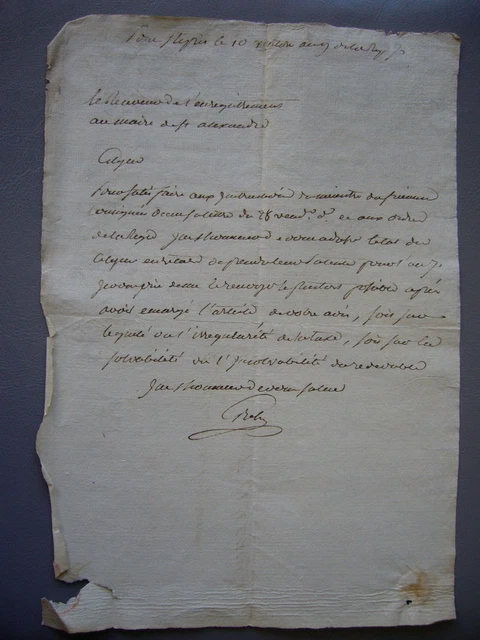 Pont St Esprit le 10 an 9 de la Rep
Le Receveur de l'enregistrement
au maire de St alexandre
Citoyen
Pour satisfaire aux Instructions du ministre des finances
Consignées dans sa lettre du 28 vend.re d.er et aux ordres
de la Regie J'ai l'honneur de vous adresser l'etat des
Citoyens en retard de prendre leur Patente pour l'an 7.
Je vous prie de me le renvoyer le plustot possible après
avoir emargé l'article de votre avis, soit sur
la quité ou l'irregularité de la taxe, soit sur la
solvabilité ou l'Insolvabilité du redevable
J'ai l'honneur de vous saluer